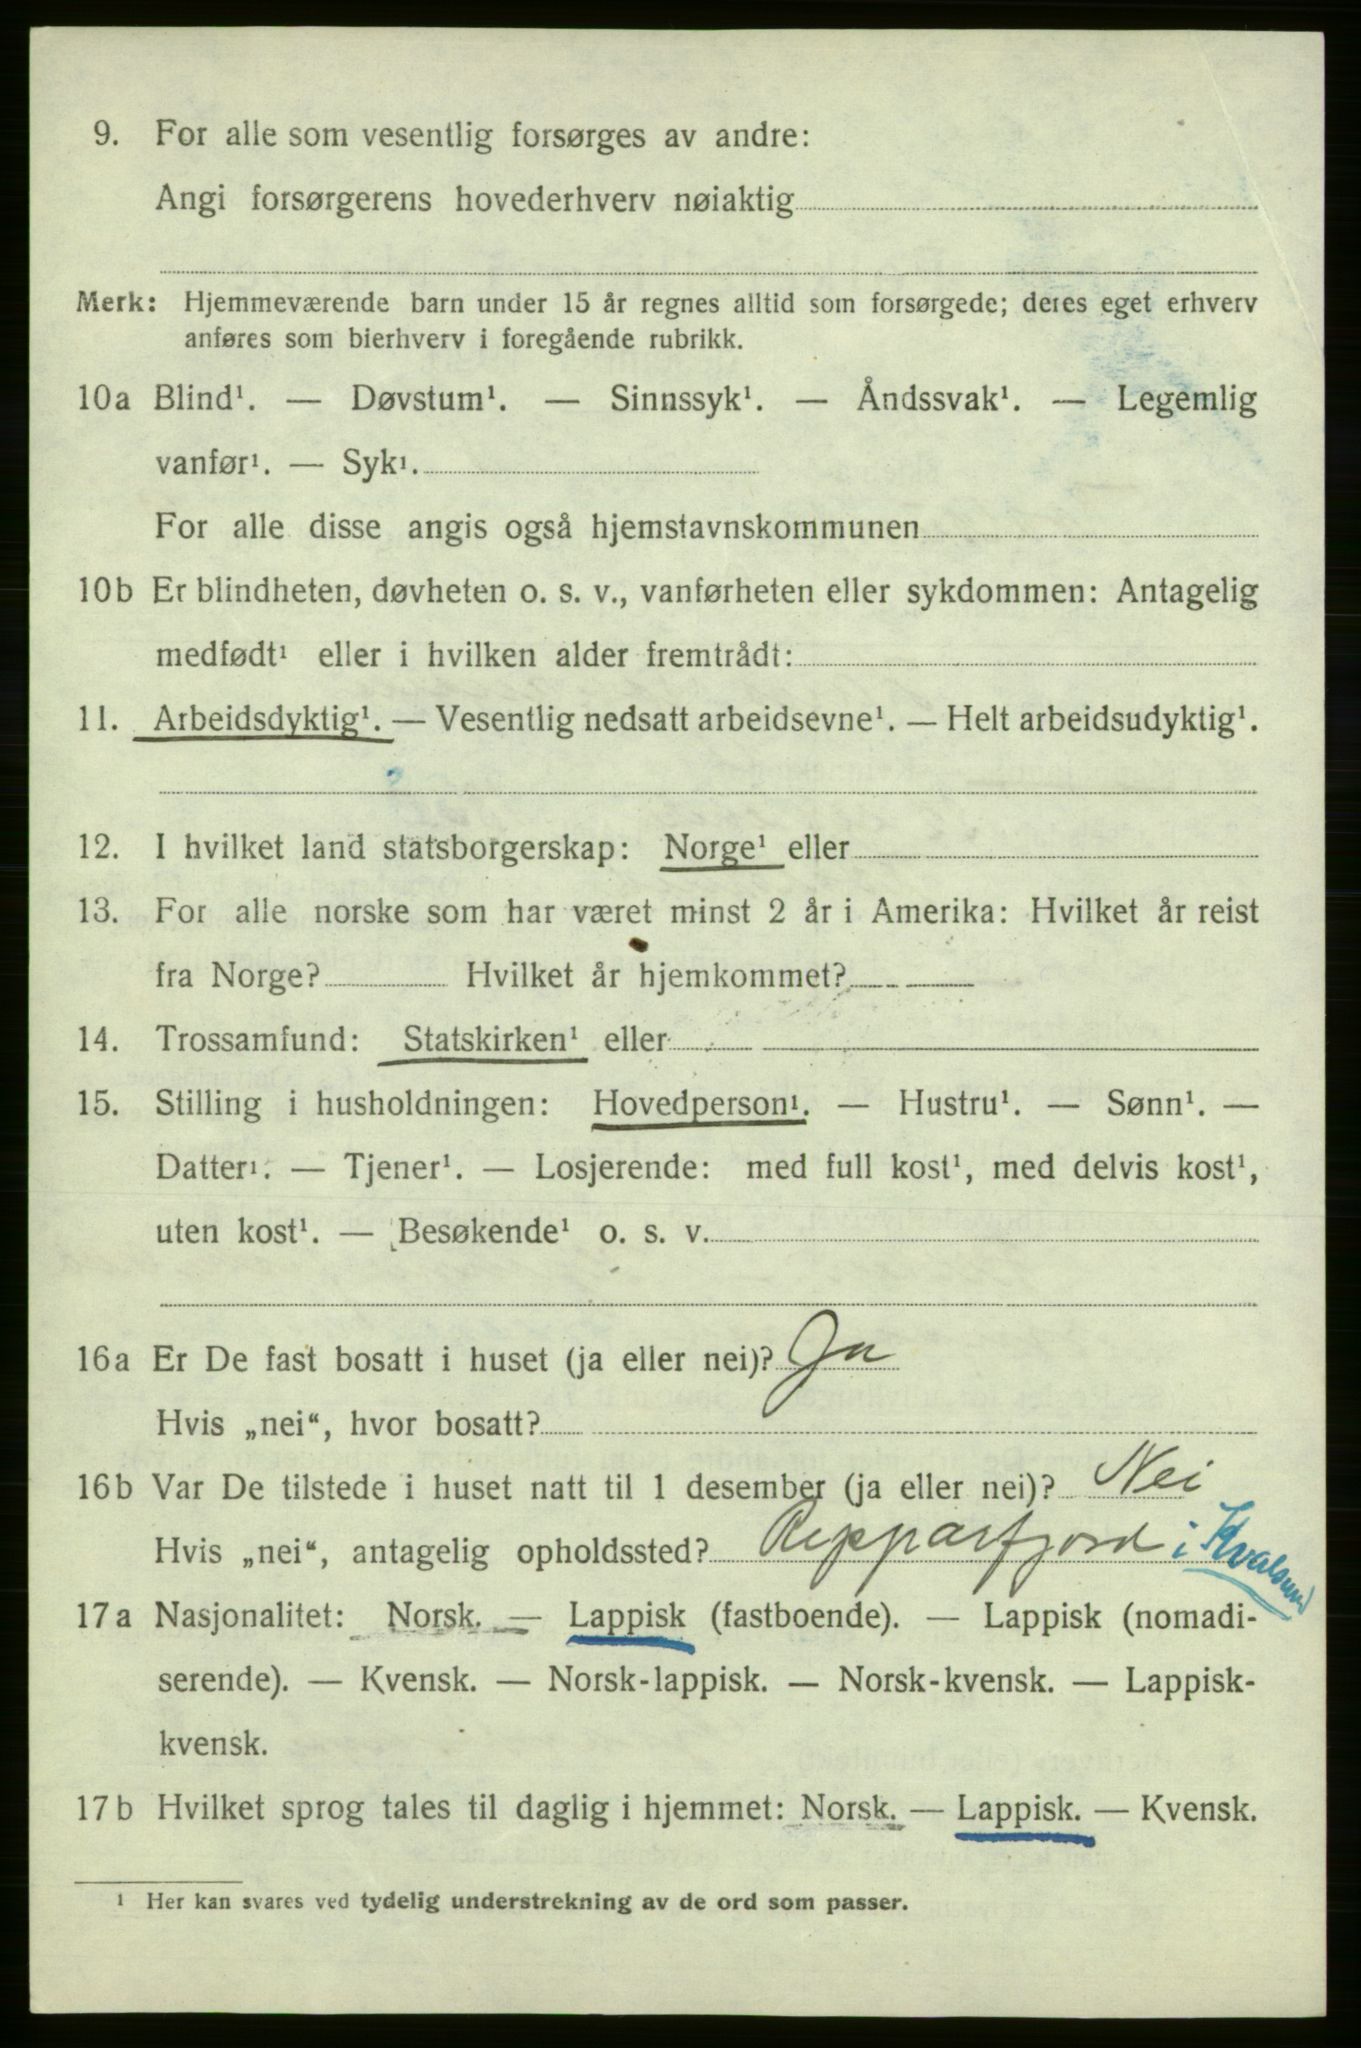 9. For alle som vesentlig forsørges av andre:
Angi forsørgerens hovederhverv nøiaktig
Merk: Hjemmeværende barn under 15 år regnes alltid som forsørgede; deres eget erhverv
anføres som bierhverv i foregående rubrikk.
10a Blind¹. — Døvstum¹. — Sinnssyk¹. — Åndssvak¹. — Legemlig
vanfør¹. — Syk¹.
For alle disse angis også hjemstavnskommunen
10b Er blindheten, døvheten o. s. v., vanførheten eller sykdommen: Antagelig
medfødt¹ eller i hvilken alder fremtrådt:
11. Arbeidsdyktig¹. — Vesentlig nedsatt arbeidsevne¹. — Helt arbeidsudyktig¹.
12. I hvilket land statsborgerskap: Norge¹ eller
13. For alle norske som har været minst 2 år i Amerika: Hvilket år reist
fra Norge? Hvilket år hjemkommet?
14. Trossamfund: Statskirken¹ eller
15. Stilling i husholdningen: Hovedperson¹. — Hustru¹. — Sønn¹. —
Datter¹. — Tjener¹. — Losjerende: med full kost¹, med delvis kost¹,
uten kost¹. — Besøkende¹ o. s. v.
16a Er De fast bosatt i huset (ja eller nei)? Ja
Hvis „nei“, hvor bosatt?
16b Var De tilstede i huset natt til 1 desember (ja eller nei)? Nei
Hvis „nei“, antagelig opholdssted? Repparfjord i Kvalsund
17a Nasjonalitet: Norsk. — Lappisk (fastboende). — Lappisk (nomadi-
serende). — Kvensk. — Norsk-lappisk. — Norsk-kvensk. — Lappisk-
kvensk.
17b Hvilket sprog tales til daglig i hjemmet: Norsk. — Lappisk. — Kvensk.
¹ Her kan svares ved tydelig understrekning av de ord som passer.